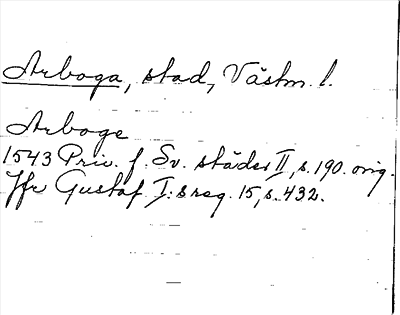 Arboga, stad, Västm. l.
Arboge
1543 Priv. f. Sv. städer II, s. 190. orig.
Jfr Gustaf I:s reg. 15, s. 432.